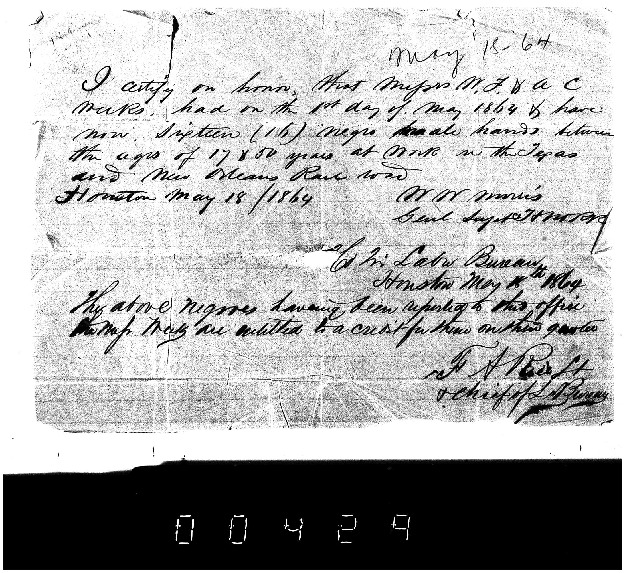 May 18 - 64
I certify on honor, that Messrs W. F. & A C
Weeks, had on the 1st day of May 1864 & have
now Sixteen (16) negro male hands between
the ages of 17 & 50 years at work on the Texas
and New Orleans Rail road
Houston May 18 / 1864 W W Morris
Genl Supt
Labor Bureau
Houston May 18th 1864
The above negroes having been reported to this office
the Messrs Weeks are entitled to a credit for them on their quota
F A
Chief of L Bureau
00429